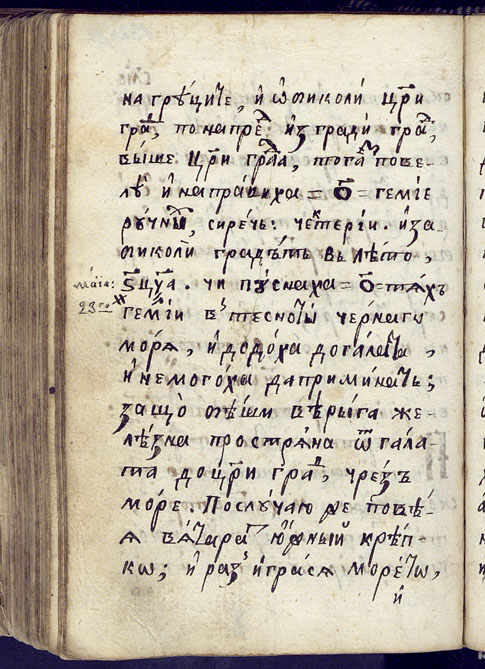 на грѣците, и ѡпиколи цр҃и
гра҃, по напре҃, изгради гра҃,
выше цр҃и гра҃да, тога҃ пове-
лѣ и направиха = о҃ = гемїе
рꙋчны, сиречь: чектерїи. и за-
ѡпиколи градътъ въ лѣто,
ѕ҃цѯ҃а. чи пꙋснаха = о҃ = тяхъ
гемїи в тесното чернаго
моря, и додоха до галата,
и не могоха да приминатъ;
защо опѣши верыга же-
лѣзна простряна ѿ гала-
та до цр҃и гра҃, чрезъ
море. По случаю же повѣ-
я вятара южный крѣп-
ко; и разиграся морето,
и
маїа:
23го